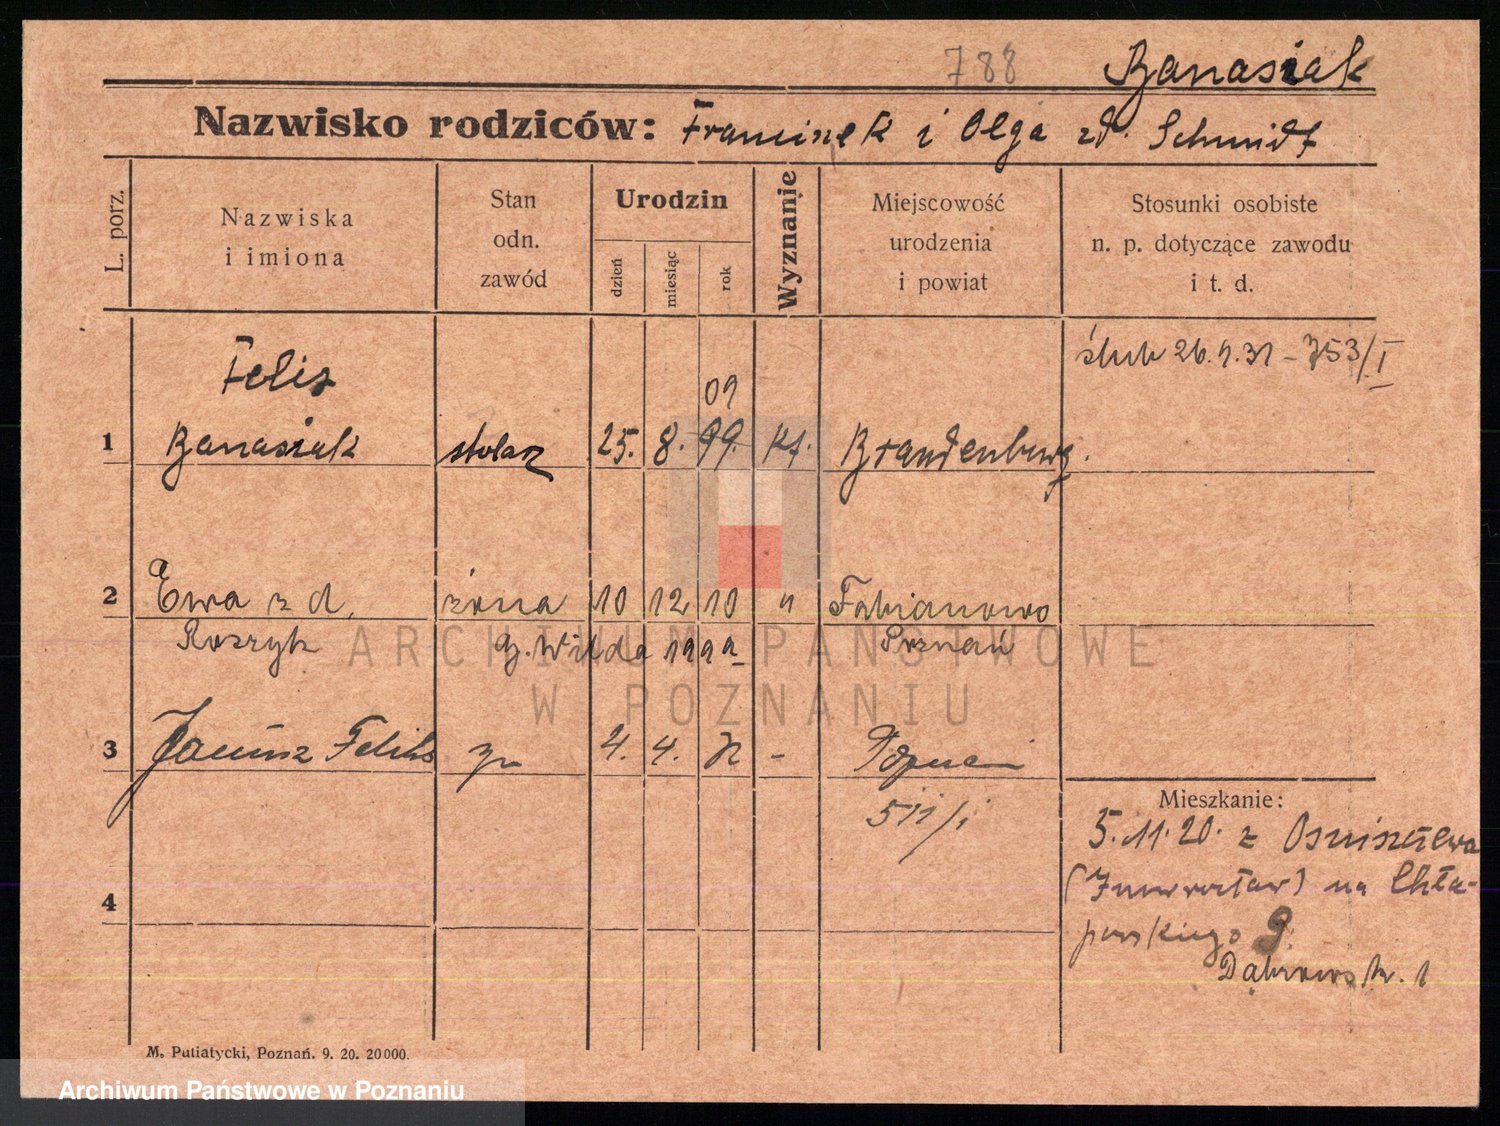 788 Banasiak
Nazwisko rodziców: Franciszek i Olga zd. Schmidt
L. porz.
Nazwiska i imiona
Stan odn. zawód
Urodzin
dzień
miesiąc
rok
Wyznanie
Miejscowość urodzenia i powiat
Stosunki osobiste n. p. dotyczące zawodu i t. d.
ślub 26.9.31 - 753/I
Felix
09
1 Banasiak stolarz 25. 8. 99. kt. Brandenburg.
2 Ewa z d. żona 10 12 10 " Fabianowo
Roszyk Poznań
3 Janusz Feliks 4. 4. -
511/i
Mieszkanie:
5.11.20. z
(Inowrocław) na Chła-
powskiego 9.
Dąbrowsk. 1
4
M. Putiatycki, Poznań. 9. 20. 20000.
ARCHIWUM PAŃSTWOWE
W POZNANIU
Archiwum Państwowe w Poznaniu